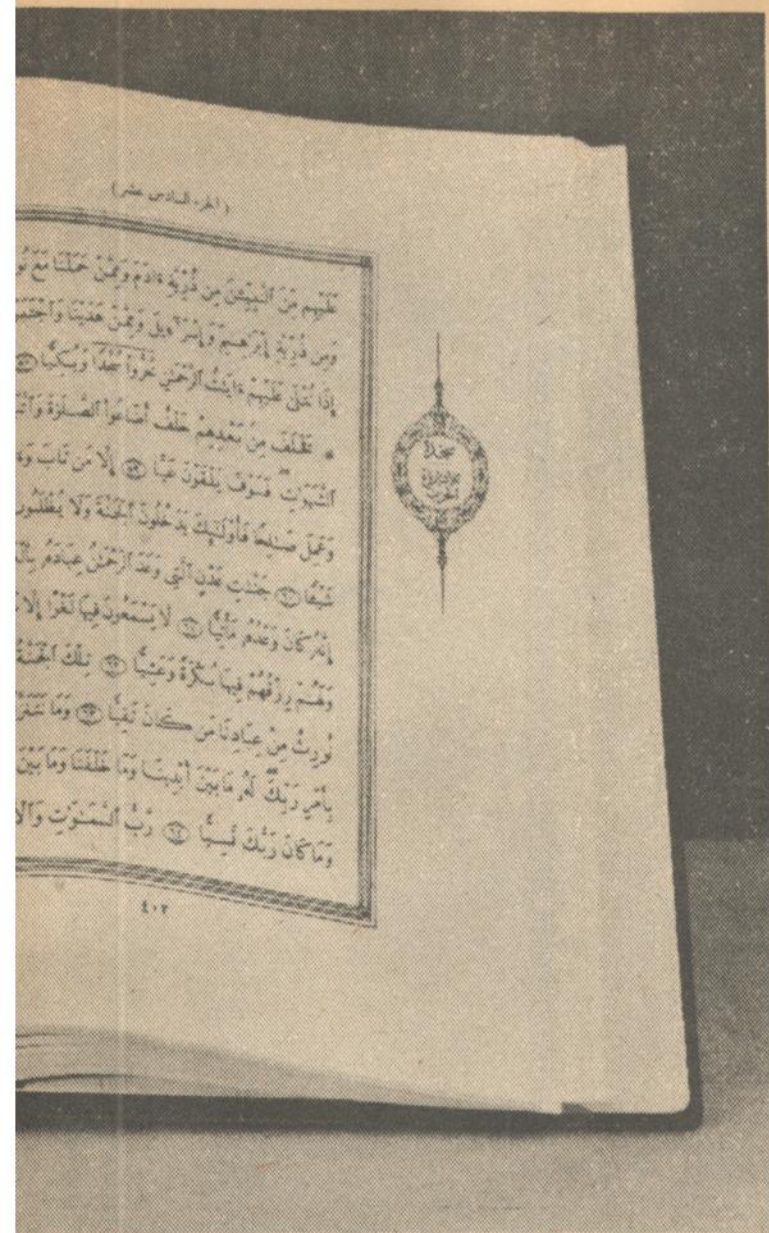 (الجزء السادس عشر)
عَلَيْهِم مِّنَ ٱلنَّبِيِّـۧنَ مِن ذُرِّيَّةِ ءَادَمَ وَمِمَّنْ حَمَلْنَا مَعَ نُو
وَمِن ذُرِّيَّةِ إِبْرَٰهِيمَ وَإِسْرَٰٓءِيلَ وَمِمَّنْ هَدَيْنَا وَٱجْتَبَيْ
إِذَا تُتْلَىٰ عَلَيْهِمْ ءَايَٰتُ ٱلرَّحْمَٰنِ خَرُّوا۟ سُجَّدًا وَبُكِيًّا ۝٥٨
* فَخَلَفَ مِنۢ بَعْدِهِمْ خَلْفٌ أَضَاعُوا۟ ٱلصَّلَوٰةَ وَٱتَّبَ
ٱلشَّهَوَٰتِ ۖ فَسَوْفَ يَلْقَوْنَ غَيًّا ۝٥٩ إِلَّا مَن تَابَ وَءَ
وَعَمِلَ صَٰلِحًا فَأُو۟لَٰٓئِكَ يَدْخُلُونَ ٱلْجَنَّةَ وَلَا يُظْلَمُونَ
شَيْـًٔا ۝٦٠ جَنَّٰتِ عَدْنٍ ٱلَّتِى وَعَدَ ٱلرَّحْمَٰنُ عِبَادَهُۥ بِٱلْ
إِنَّهُۥ كَانَ وَعْدُهُۥ مَأْتِيًّا ۝٦١ لَّا يَسْمَعُونَ فِيهَا لَغْوًا إِلَّا
وَلَهُمْ رِزْقُهُمْ فِيهَا بُكْرَةً وَعَشِيًّا ۝٦٢ تِلْكَ ٱلْجَنَّةُ
نُورِثُ مِنْ عِبَادِنَا مَن كَانَ تَقِيًّا ۝٦٣ وَمَا نَتَنَزَّ
بِأَمْرِ رَبِّكَ ۖ لَهُۥ مَا بَيْنَ أَيْدِينَا وَمَا خَلْفَنَا وَمَا بَيْنَ
وَمَا كَانَ رَبُّكَ نَسِيًّا ۝٦٤ رَّبُّ ٱلسَّمَٰوَٰتِ وَٱلْأَ
٤٠٢
سجدة